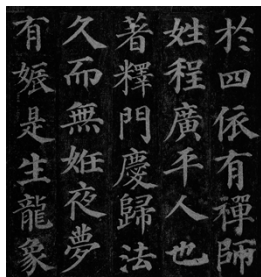 於四依有禪師
姓程廣平人也
著釋門慶歸法
久而無妊夜夢
有娠是生龍象